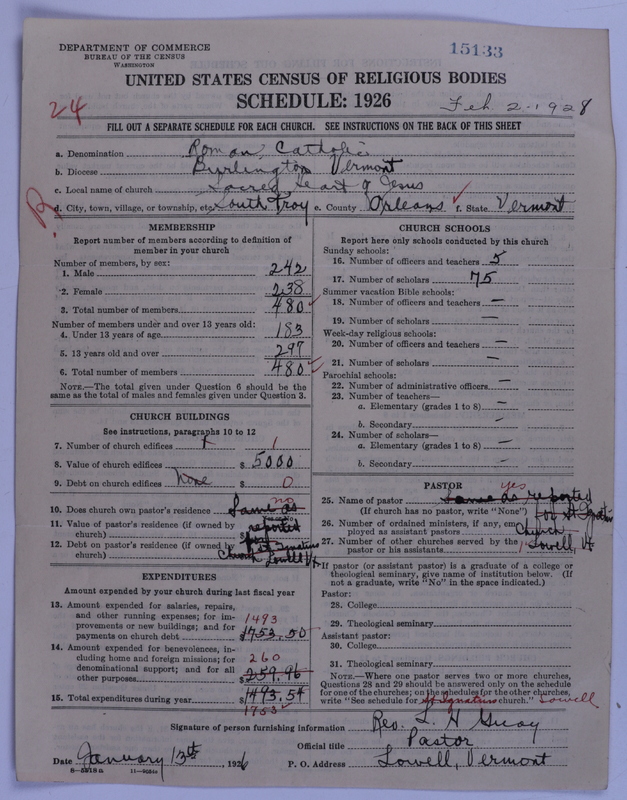 DEPARTMENT OF COMMERCE
BUREAU OF THE CENSUS
WASHINGTON
15133
UNITED STATES CENSUS OF RELIGIOUS BODIES
SCHEDULE: 1926
24
Feb. 2-1928
FILL OUT A SEPARATE SCHEDULE FOR EACH CHURCH. SEE INSTRUCTIONS ON THE BACK OF THIS SHEET
a. Denomination Roman Catholic
b. Diocese Burlington Vermont
c. Local name of church Sacred Heart of Jesus
d. City, town, village, or township, etc. South Troy e. County Orleans f. State Vermont
MEMBERSHIP
Report number of members according to definition of member in your church
Number of members, by sex:
1. Male 242
2. Female 238
3. Total number of members 480
Number of members under and over 13 years old:
4. Under 13 years of age 183
5. 13 years old and over 297
6. Total number of members 480
NOTE.—The total given under Question 6 should be the same as the total of males and females given under Question 3.
CHURCH BUILDINGS
See instructions, paragraphs 10 to 12
7. Number of church edifices 1
8. Value of church edifices $5000
9. Debt on church edifices None $ 0
10. Does church own pastor's residence no Same as
11. Value of pastor's residence (if owned by church) $ reported
12. Debt on pastor's residence (if owned by church) for St Ignatius Church Lowell Vt.
EXPENDITURES
Amount expended by your church during last fiscal year
13. Amount expended for salaries, repairs, and other running expenses; for improvements or new buildings; and for payments on church debt 1493 $1753.50
14. Amount expended for benevolences, including home and foreign missions; for denominational support; and for all other purposes 260 $259.96
15. Total expenditures during year $1493.54
1753
CHURCH SCHOOLS
Report here only schools conducted by this church
Sunday schools:
16. Number of officers and teachers 5
17. Number of scholars 75
Summer vacation Bible schools:
18. Number of officers and teachers —
19. Number of scholars —
Week-day religious schools:
20. Number of officers and teachers —
21. Number of scholars —
Parochial schools:
22. Number of administrative officers —
23. Number of teachers—
a. Elementary (grades 1 to 8) —
b. Secondary —
24. Number of scholars—
a. Elementary (grades 1 to 8) —
b. Secondary —
PASTOR
25. Name of pastor yes Same as reported
(If church has no pastor, write "None") for St Ignatius
26. Number of ordained ministers, if any, employed as assistant pastors Church
27. Number of other churches served by the pastor or his assistants 1 Lowell, Vt
If pastor (or assistant pastor) is a graduate of a college or theological seminary, give name of institution below. (If not a graduate, write "No" in the space indicated.)
Pastor:
28. College
29. Theological seminary
Assistant pastor:
30. College
31. Theological seminary
NOTE.—Where one pastor serves two or more churches, Questions 28 and 29 should be answered only on the schedule for one of the churches; on the schedules for the other churches, write "See schedule for St Ignatius church." Lowell
Signature of person furnishing information Rev. L. H Guay
Official title Pastor
Date January 13th, 1926
P. O. Address Lowell, Vermont
8—5918a 11—9051